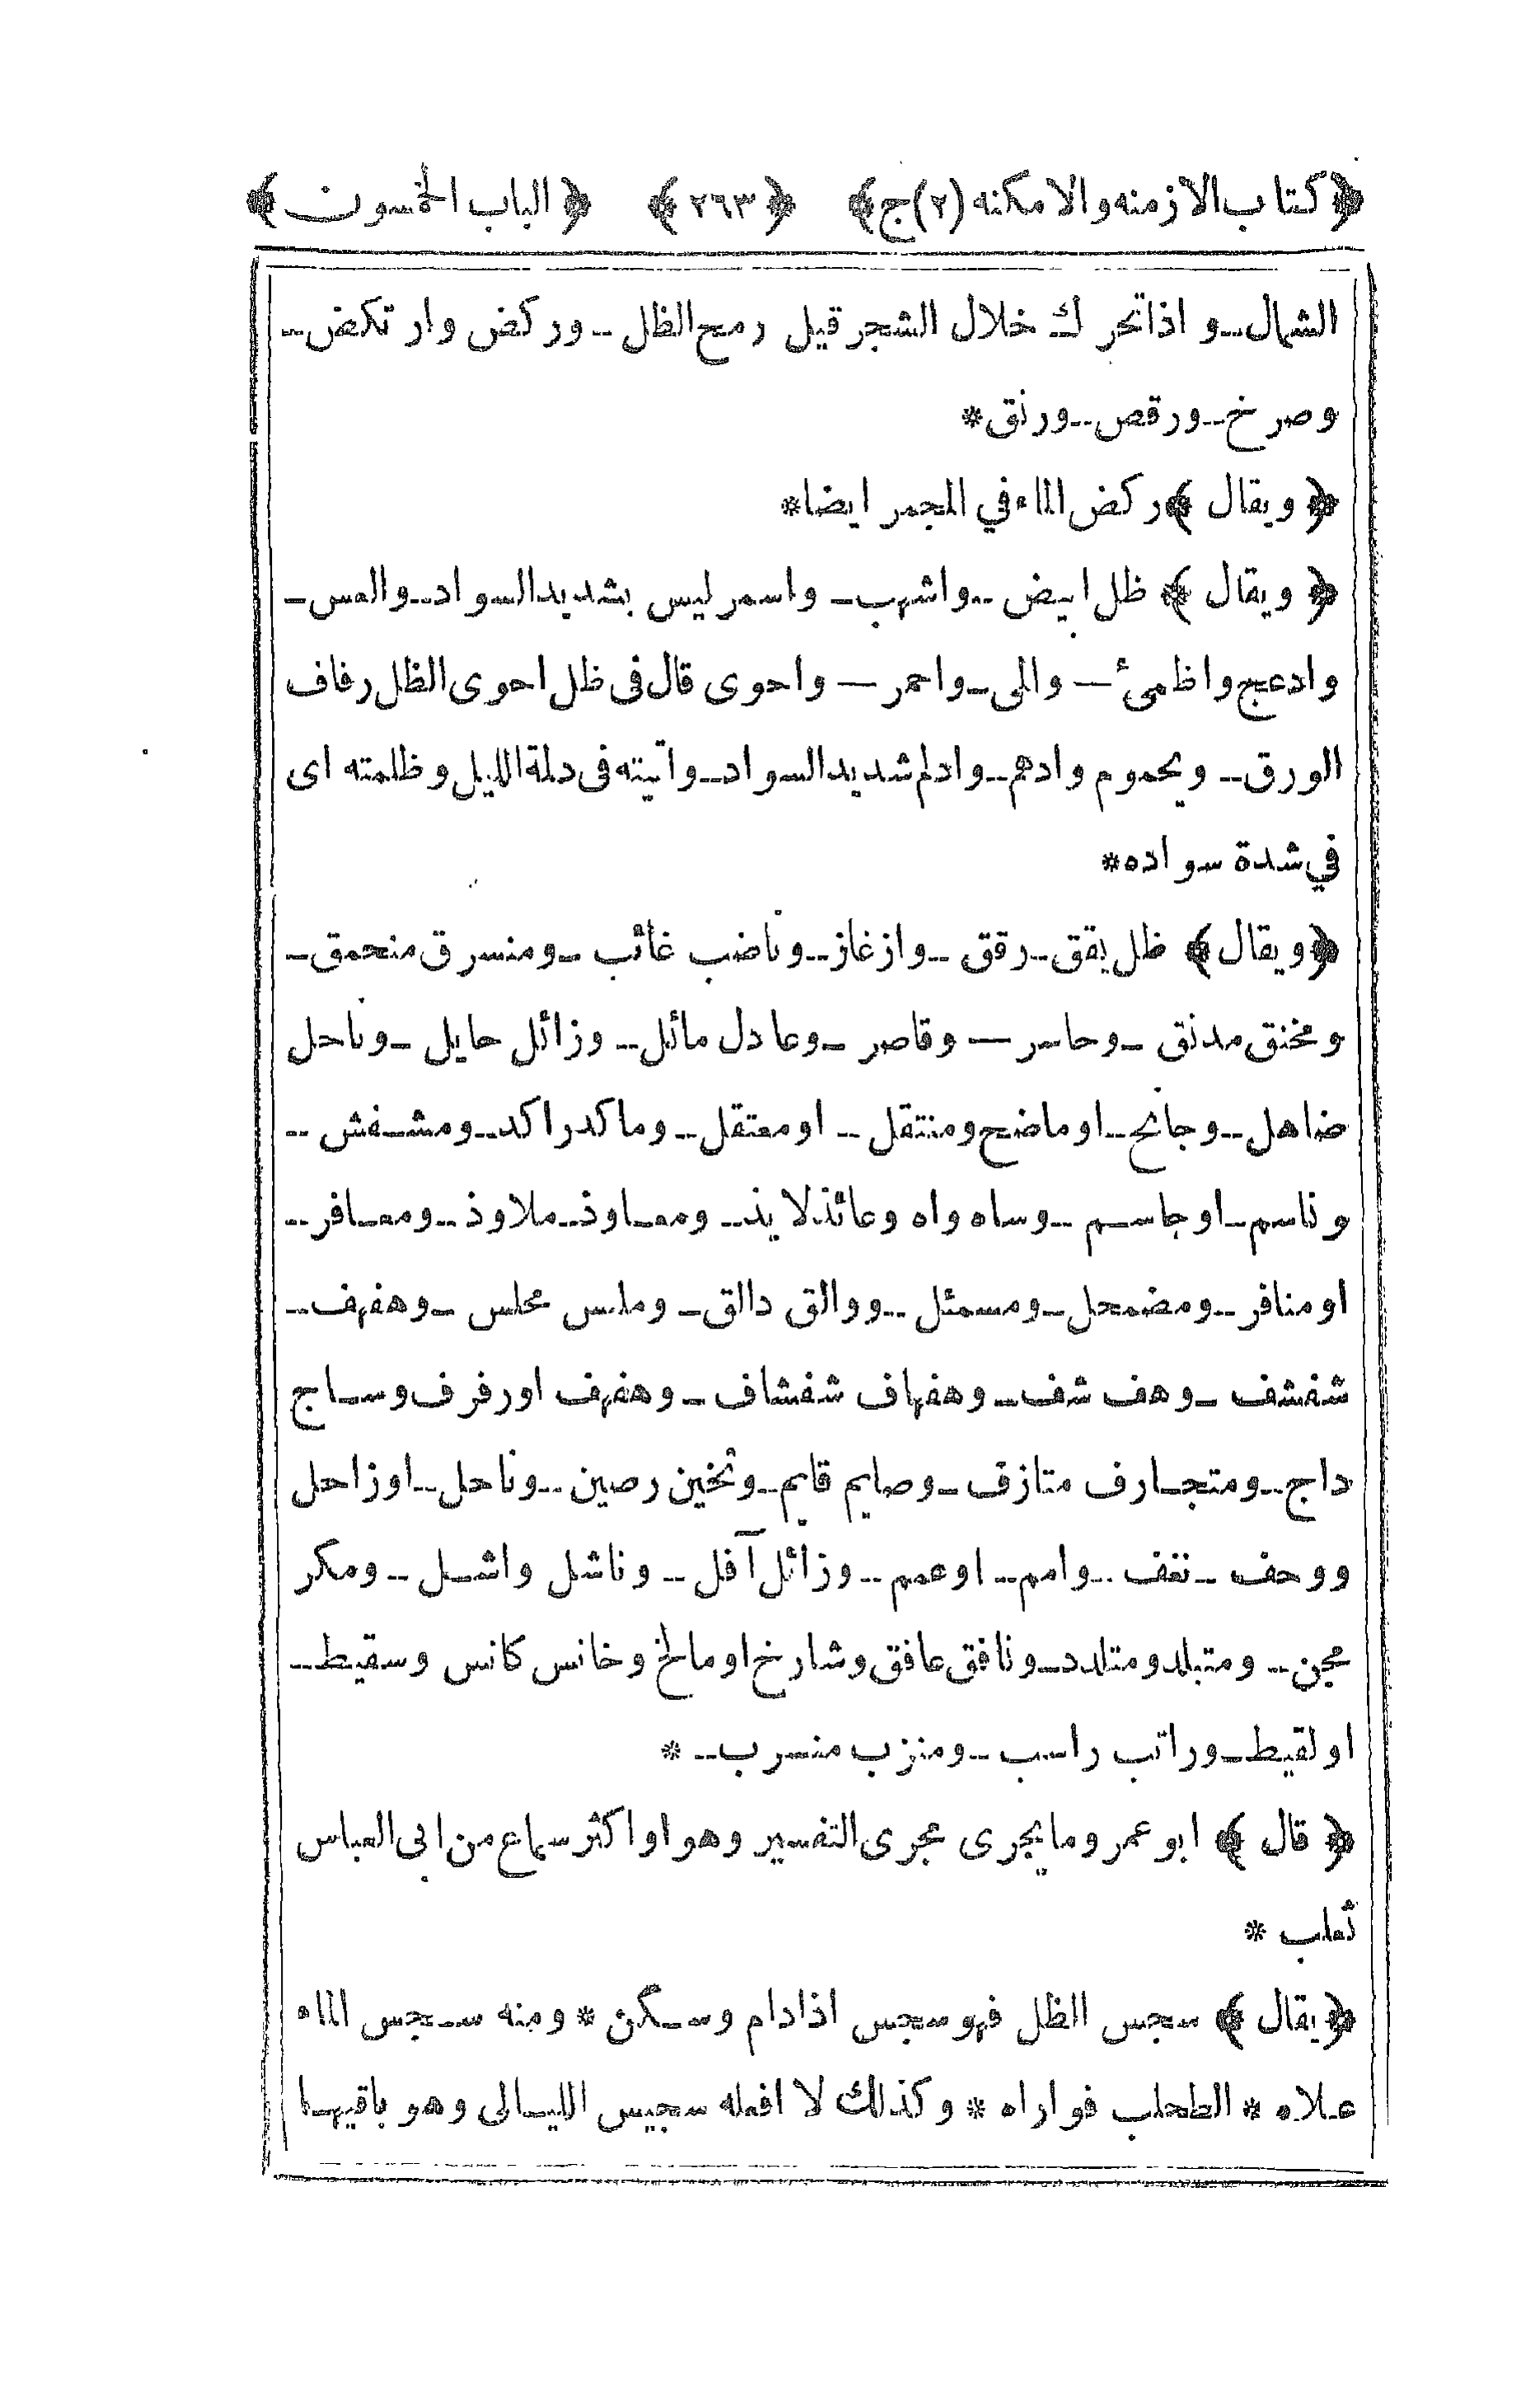 ﴿كتاب الازمنه والامكنه (٢) ج﴾ ﴿٢٦٣﴾ ﴿الباب الخمسون﴾
الشمال – و اذا تحرك خلال الشجر قيل رمح الظل – وركض وارتكض –
وصرخ – ورقص – ورنق *
﴿ويقال﴾ ركض الماء في المجمر ايضا *
﴿ويقال﴾ ظل ابيض – واشهب – واسمر ليس بشديد السواد – والعس –
وادعج واظمىٔ – والمى – واحمر – واحوى قال فى ظل احوى الظل رفاف
الورق – ويحموم وادهم – وادلم شديد السواد – وآتيته فى دلمة الليل وظلمته اى
في شدة سواده *
﴿ويقال﴾ ظل يقق – رقق – وازغاز – وناضب غائب – ومنسرق منحمق –
ومخنق مدنق – وحاسر – وقاصر – وعادل مائل – وزائل حايل – وناحل
ضاهل – وجانح – او ماضح ومنتقل – او معتقل – وماكد راكد – ومشفش –
وناسم – او جاسم – وساه واه وعائذ لايذ – ومعاوذ – ملاوذ – ومعافر –
او منافر – ومضمحل – ومسمئل – ووالق دالق – وملس مخلس – وهفهف –
شفشف – وهف شف – وهفهاف شفشاف – وهفهف او رفرف وساج
داج – ومتجارف متازف – وصايم قايم – وثخين رصين – وناحل – او زاحل
ووحف – نغف – وامم – او عمم – وزائل آفل – وناشل واشل – ومكر
مجن – ومتبلد ومتلدد – ونافق عافق وشارخ او مالخ وخانس كانس وسقيط –
او لقيط – وراتب راسب – ومنزب منسرب – *
﴿قال﴾ ابو عمر وما يجرى مجرى التفسير وهو او اكثر سماع من ابى العباس
ثعلب *
﴿يقال﴾ سجس الظل فهو سجس اذا دام وسكن * ومنه سجس الماء
علاه * الطحلب فواراه * وكذلك لا افعله سجيس الليالى وهو باقيها